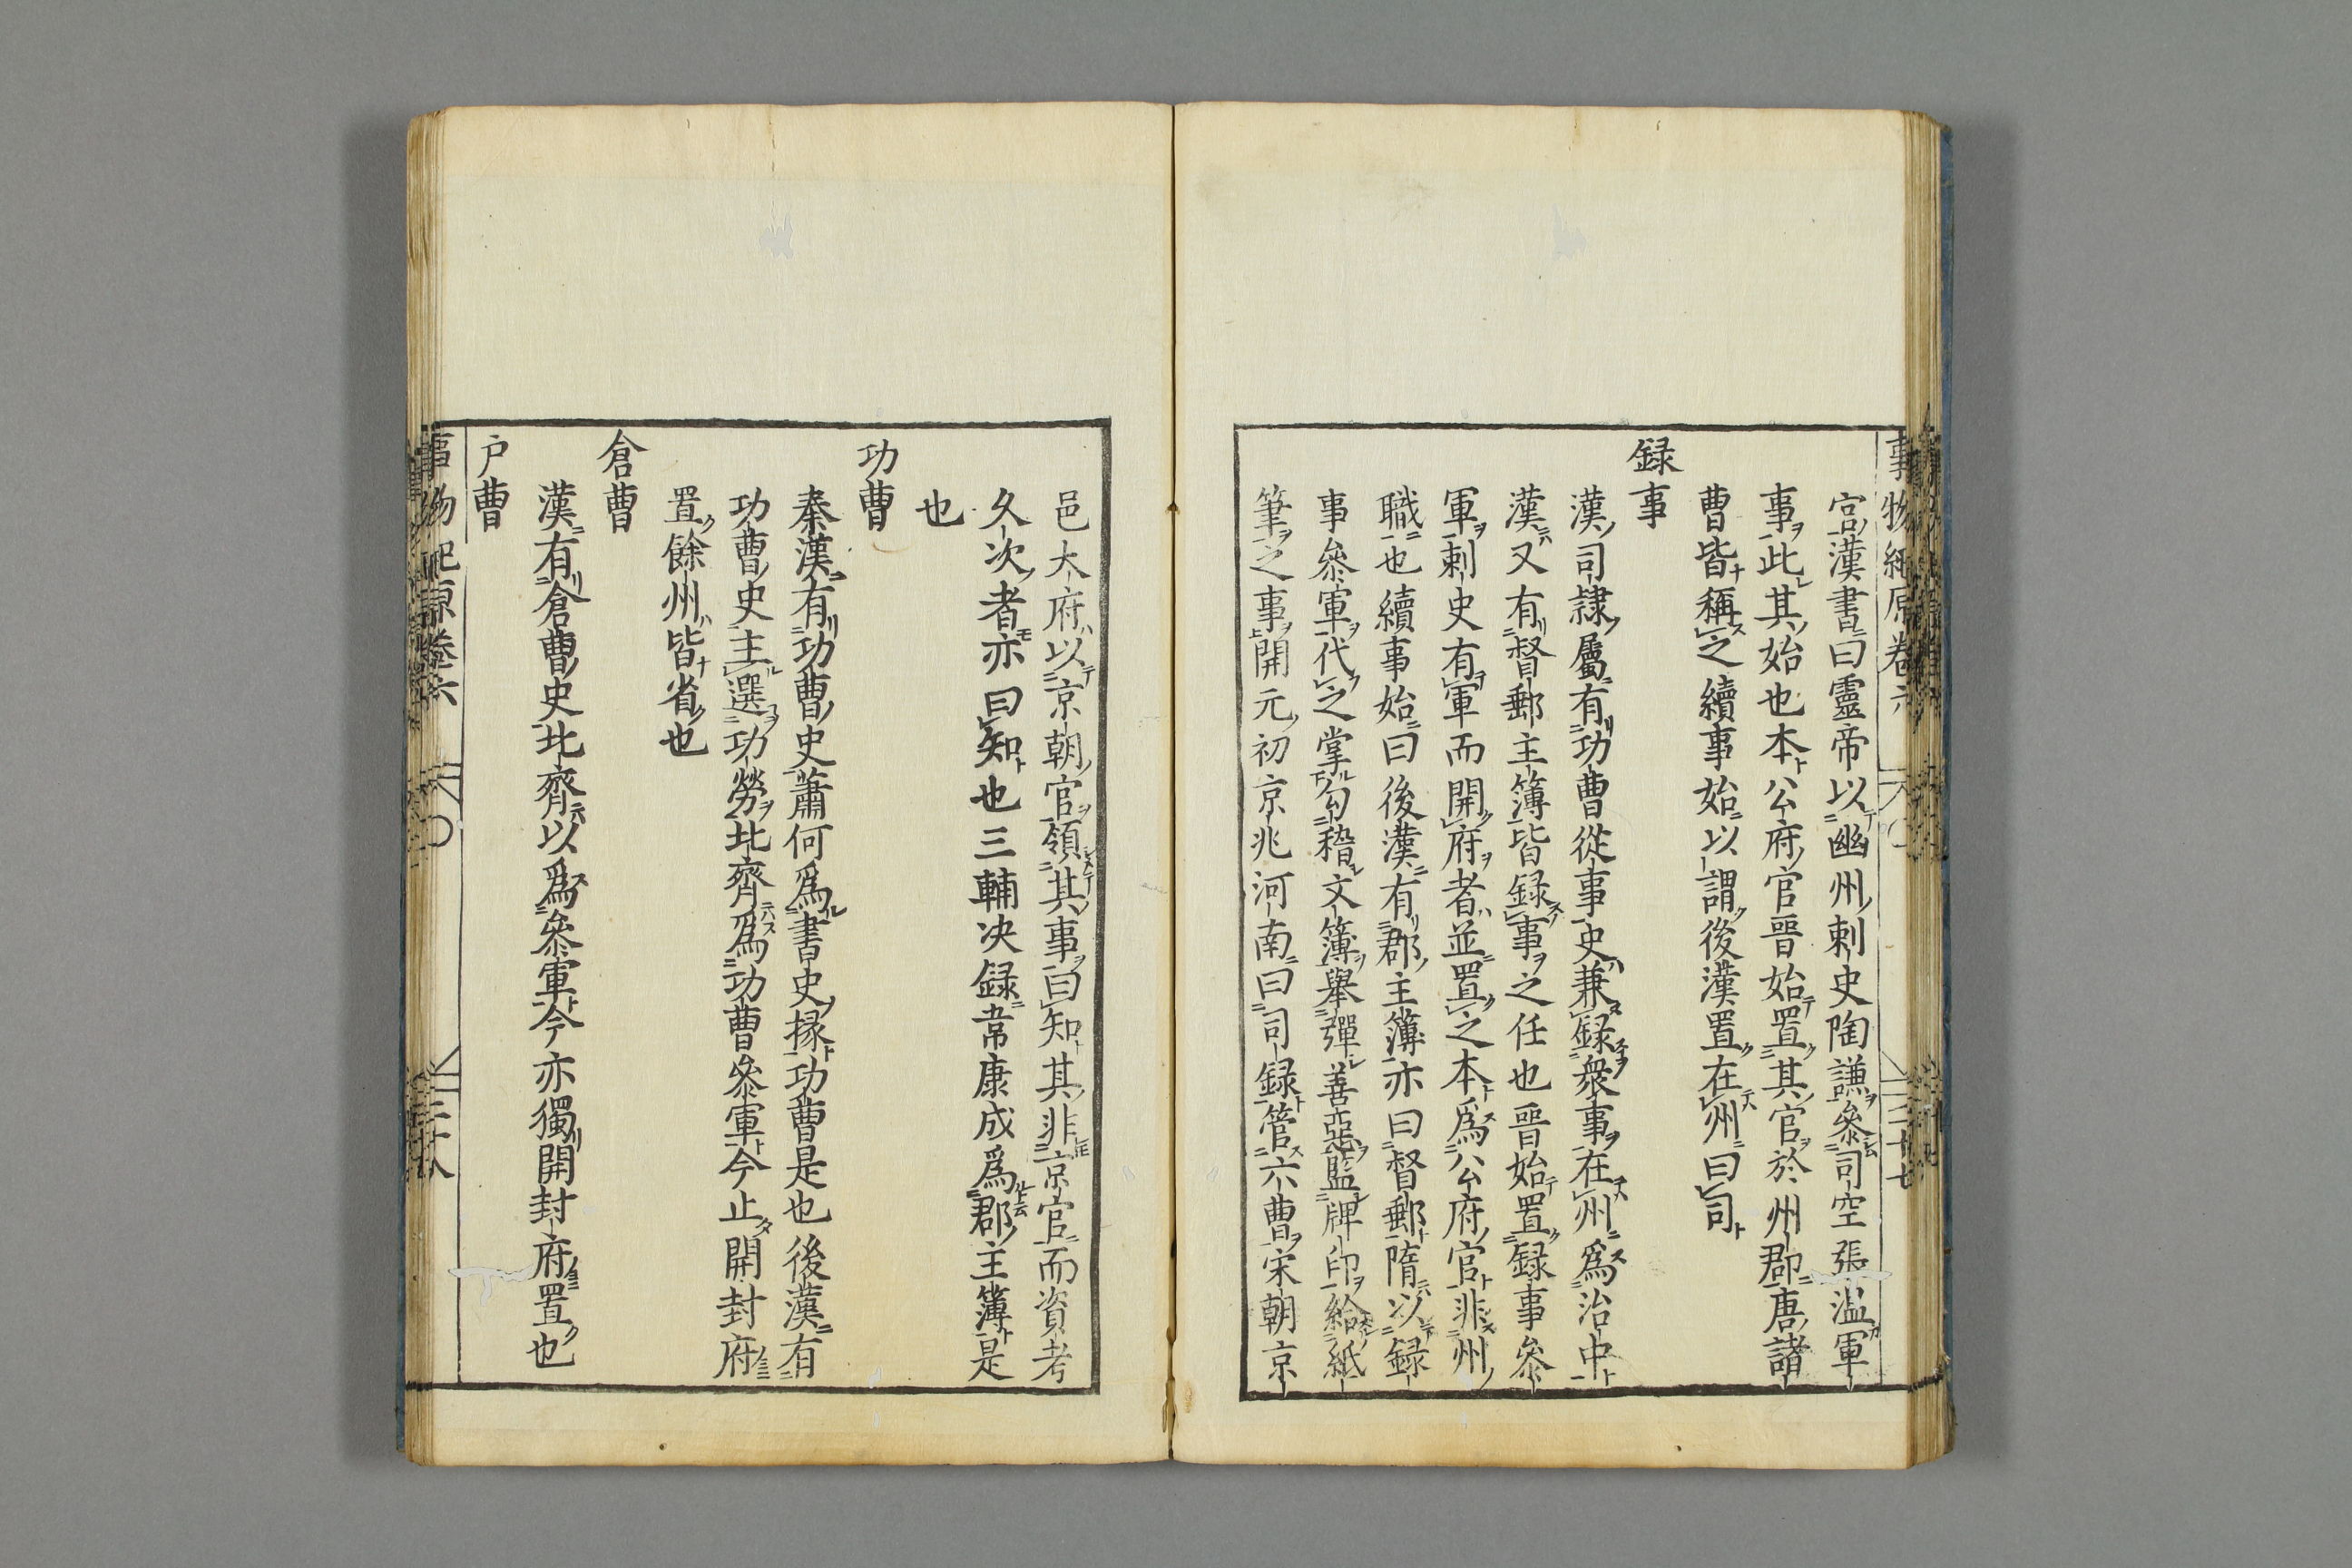 事物紀原卷六 二十七
官漢書曰靈帝以幽州刺史陶謙參司空張温軍
事此其始也本公府官晉始置其官於州郡唐諸
曹皆稱之續事始以謂後漢置在州曰司
録事
漢司隷屬有功曹從事史兼録衆事在州爲治中
漢又有督郵主簿皆録事之任也晉始置録事參
軍刺史有軍而開府者並置之本爲公府官非州
職也續事始曰後漢有郡主簿亦曰督郵隋以録
事參軍代之掌勾稽文簿舉彈善惡監牌印給紙
筆之事開元初京兆河南曰司録管六曹宋朝京
邑大府以京朝官領其事曰知其非京官而資考
久次者亦曰知也三輔决録韋康成爲郡主簿是
也
功曹
秦漢有功曹史蕭何爲書史掾功曹是也後漢有
功曹史主選功勞北齊爲功曹參軍今止開封府
置餘州皆省也
倉曹
漢有倉曹史北齊以爲參軍今亦獨開封府置也
戸曹
事物紀原卷六 二十八